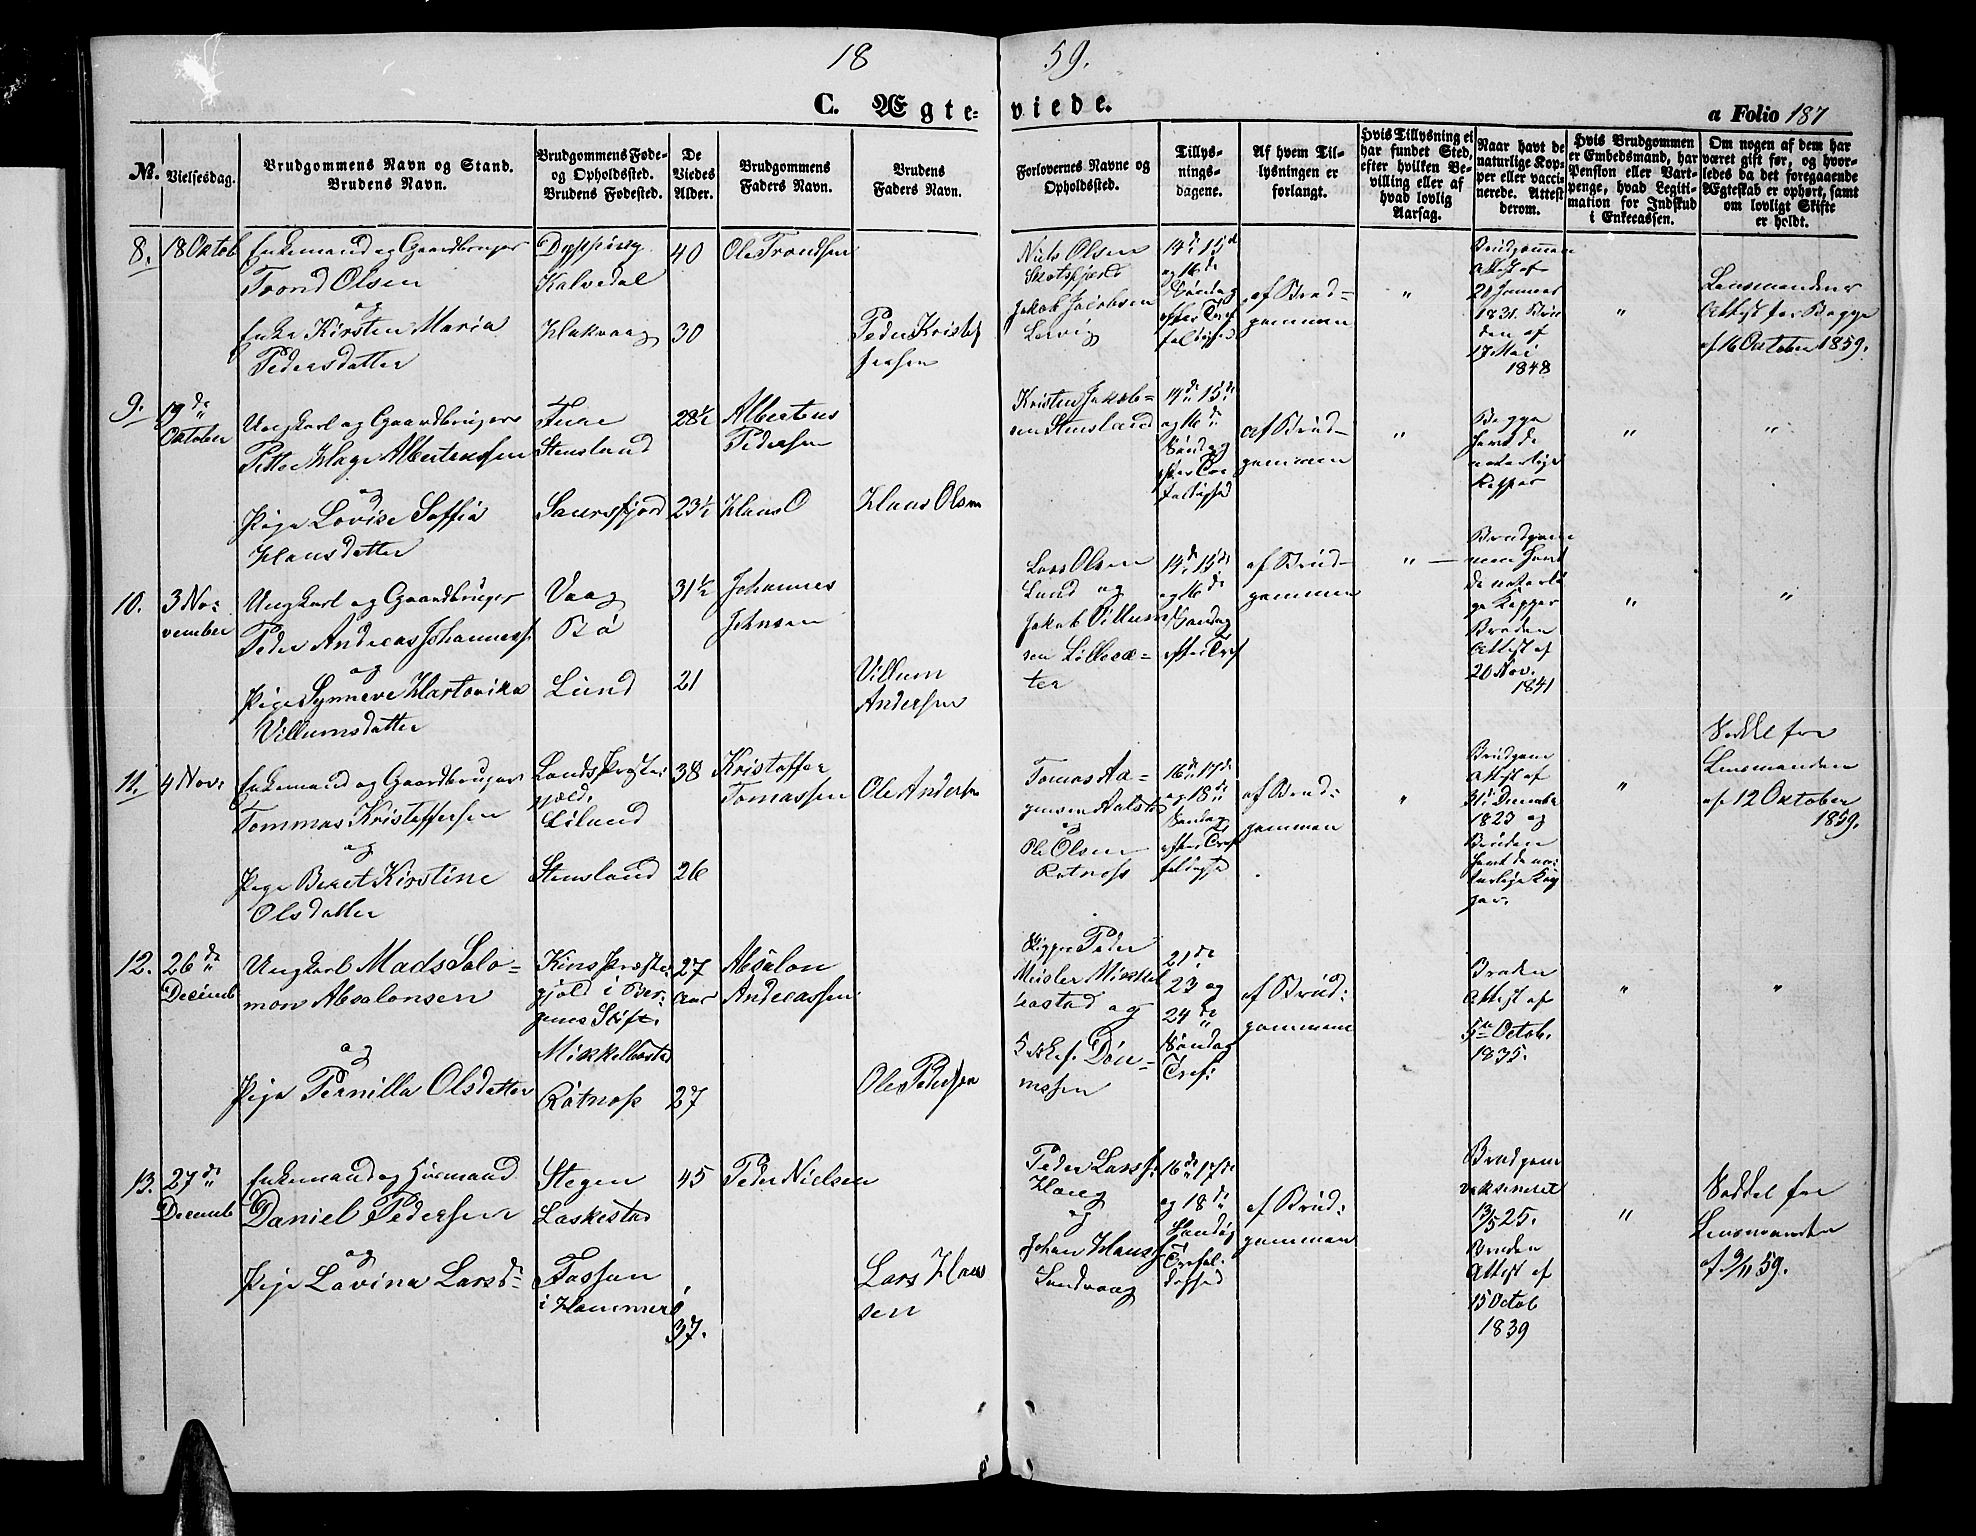 18 59.
C. Ægteviede.
a Folio 187
No.
Vielsesdag.
Brudgommens Navn og Stand.
Brudens Navn.
Brudgommens Føde-
og Opholdssted.
Brudens Fødested.
De
Viedes
Alder.
Brudgommens
Faders Navn.
Brudens
Faders Navn.
Forlovernes Navne og
Opholdssted.
Tillys-
nings-
dagene.
Af hvem Til-
lysningen er
forlangt.
Hvis Tillysning ei
har fundet Sted,
efter hvilken Be-
villing eller af
hvad lovlig
Aarsag.
Naar havt de
naturlige Kop-
per eller vacci-
nerede. Attest
derom.
Hvis Brudgommen
er Embedsmand, har
Pension eller Vart-
penge, hvad Legiti-
mation for Indskud
i Enkecassen.
Om nogen af dem har
været gift før, og hvor-
ledes da det foregaaende
Ægteskab er ophørt, samt
om lovligt Skifte
er holdt.
8.
18 Oktob
Enkemand og Gaardbruger
Trond Olsen
og
Enke Kirsten Maria
Pedersdatter
Dypping
Kalvedal
Hakvaag
40
30
Ole Trondsen
Peder Krist
Niels Olsen
Skotsfjord
Jakob Jakobsen
Lervig
14de 15d
og 16de
Søndag
efter Tref
foldighed
af Brud=
gommen
"
Brudgommen
Attest af
1831. Bru
den af
17 Mai
1848
"
Lensmandens
Attest for Begge
af 16 October 1859.
9.
19de
Oktober
Ungkarl og Gaardbruger
Petter Hage Albertussen
og
Pige Lovise Soffia
Hansdatter
Fure
Stensland
Saursfjord
28½
23½
Albertus
Pedersen
Hans O
Hans Olsen
Kristen Jakob=
sen Stensland
14de 15de
og 16de
Søndag
efter Tre
foldighed
af Brud=
gommen
"
Begge
havt de
naturlige
Kopper
"
"
10.
3 No=
vember
Ungkarl og Gaardbruger
Peder Andreas Johanness.
og
Pige Synneve Hartvika
Villumsdatter
Vaag
Bø
Lund
31½
21
Johannes
Johnsen
Villum
Andersen
Lars Olsen
Lund og
Jakob Villum
sen Lillesæ=
ter
14de 15de
og 16de
Søndag
efter Tref
af Brud=
gommen
"
Brudgom
men havt
de naturli
ge Kopper
Bruden
Attest af
20 Nov.
1841
"
"
11.
4 Nov:
Enkemand og Gaardbruger
Tommas Kristoffersen
og
Pige Beret Kirstine
Olsdatter
Lunds Præste
gjeld.
Liland
Stensland
38
26
Kristoffer
Tomassen
Ole Andersen
Tomas Aa=
gensen Aalstad
og
Ole Olsen
Rotnoss
16de 17de
og 18de
Søndag
efter Tref
foldighed
af Brud=
gommen
"
Brudgom
Attest af
31 Decembr
1823 og
Bruden
havt de na=
turlige Kop
per.
"
Seddel fra
Lensmanden
af 12 Oktober
1859.
12.
26de
Decemb
Ungkarl Mads Salo=
mon Absalonsen
og
Pige Pernilla Olsdatter
Kins Præste
gjeld i Ber=
gens Stift.
Mikkelbosta
Rotnoss
27
Aar
27
Absalon
Andreassen
Ole Pedersen
Skipper Peder
Meisler Mikkel
bostad og
21de
23 og
24de
Søndag
Tref:
af Brud=
gommen
Bruden
Attest af
5te Octob.
1835.
"
"
13.
27de
Decemb
Enkemand og Huusmand
Daniel Pedersen
og
Pige Lavina Larsd
Stegen
Laskestad
i Hammerø
45
37.
Peder Nielsen
Lars Han
sen
Peder Larss.
Haug
og
Johan Hanss
Sandvaag
16de 17de
og 18de
Søndag
Trefol=
dighed
af Brud=
gommen
Brudgom
vaksineret
13/5 25.
Bruden
Attest af
15 Octob
1839
"
Seddel fra
Lensmanden
af 9/11 59.